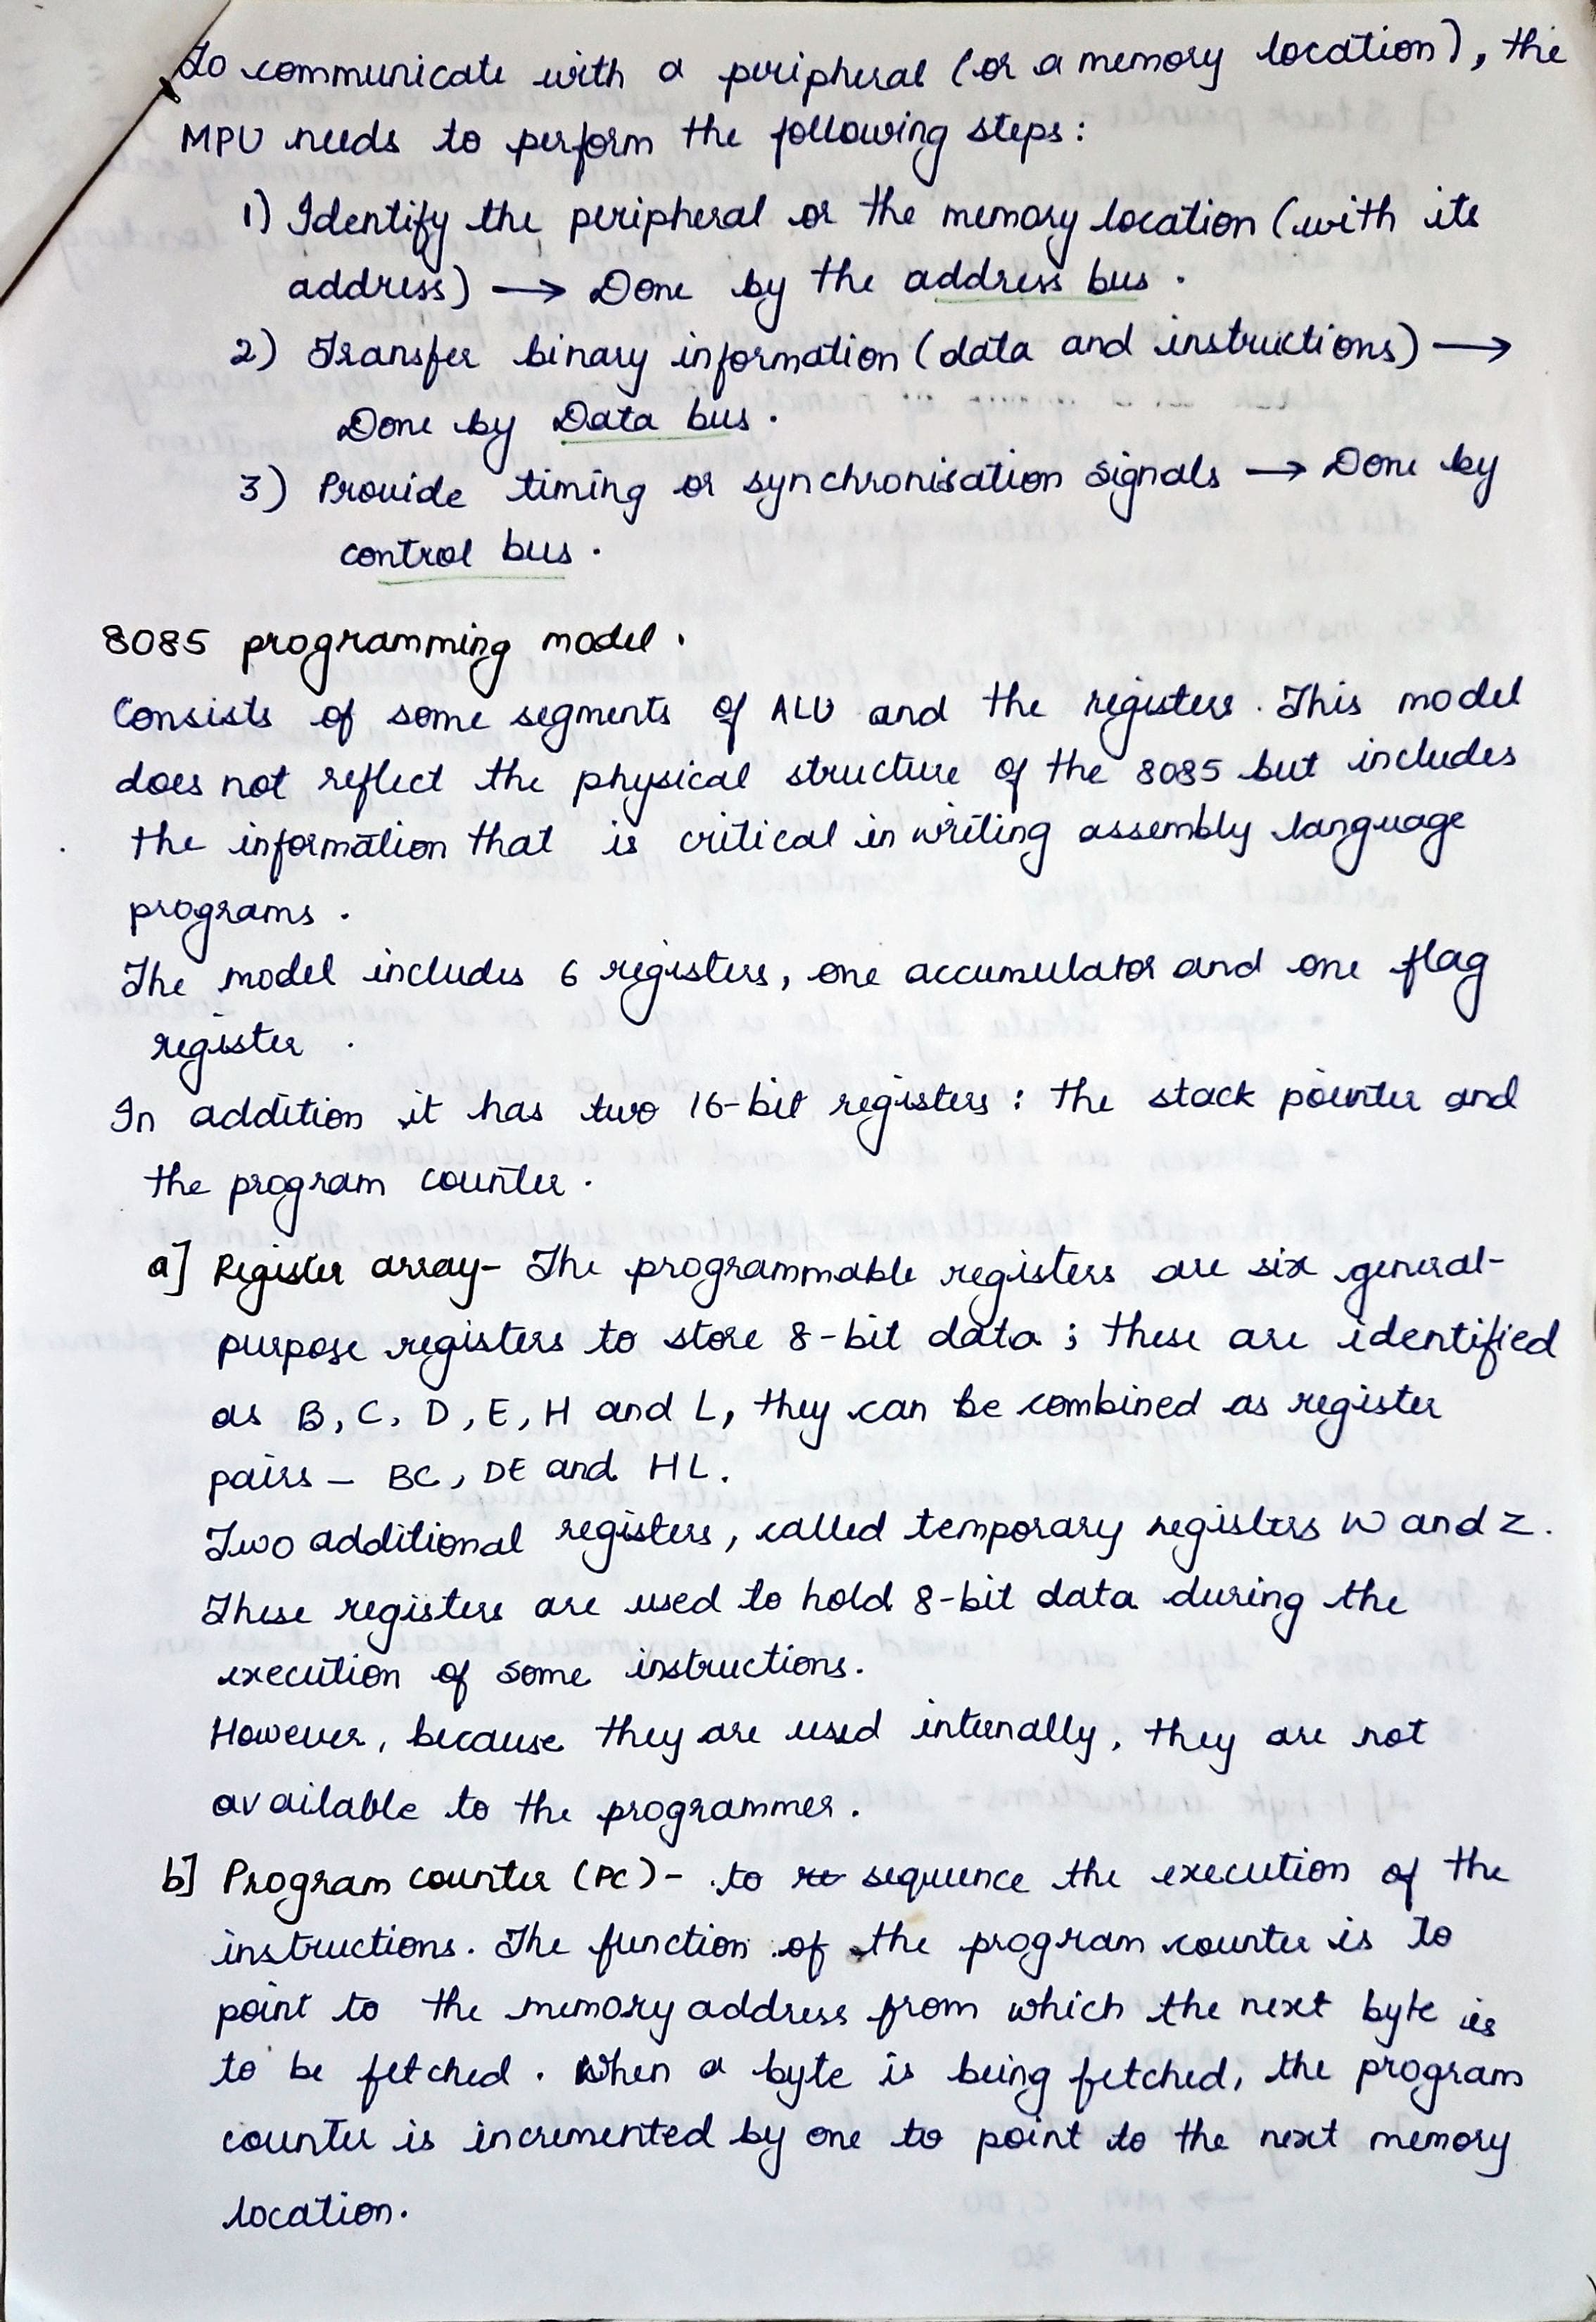 To communicate with a peripheral (or a memory location), the
MPU needs to perform the following steps:
1) Identify the peripheral or the memory location (with its
address) → Done by the address bus.
2) Transfer binary information (data and instructions) →
Done by Data bus.
3) Provide timing or synchronisation signals → Done by
control bus.
8085 programming model.
Consists of some segments of ALU and the registers. This model
does not reflect the physical structure of the 8085 but includes
the information that is critical in writing assembly language
programs.
The model includes 6 registers, one accumulator and one flag
register.
In addition it has two 16-bit registers: the stack pointer and
the program counter.
a] Register array- The programmable registers are six general-
purpose registers to store 8-bit data; these are identified
as B, C, D, E, H and L, they can be combined as register
pairs - BC, DE and HL.
Two additional registers, called temporary registers W and Z.
These registers are used to hold 8-bit data during the
execution of some instructions.
However, because they are used internally, they are not
available to the programmer.
b] Program counter (PC)- to sequence the execution of the
instructions. The function of the program counter is to
point to the memory address from which the next byte is
to be fetched. When a byte is being fetched, the program
counter is incremented by one to point to the next memory
location.